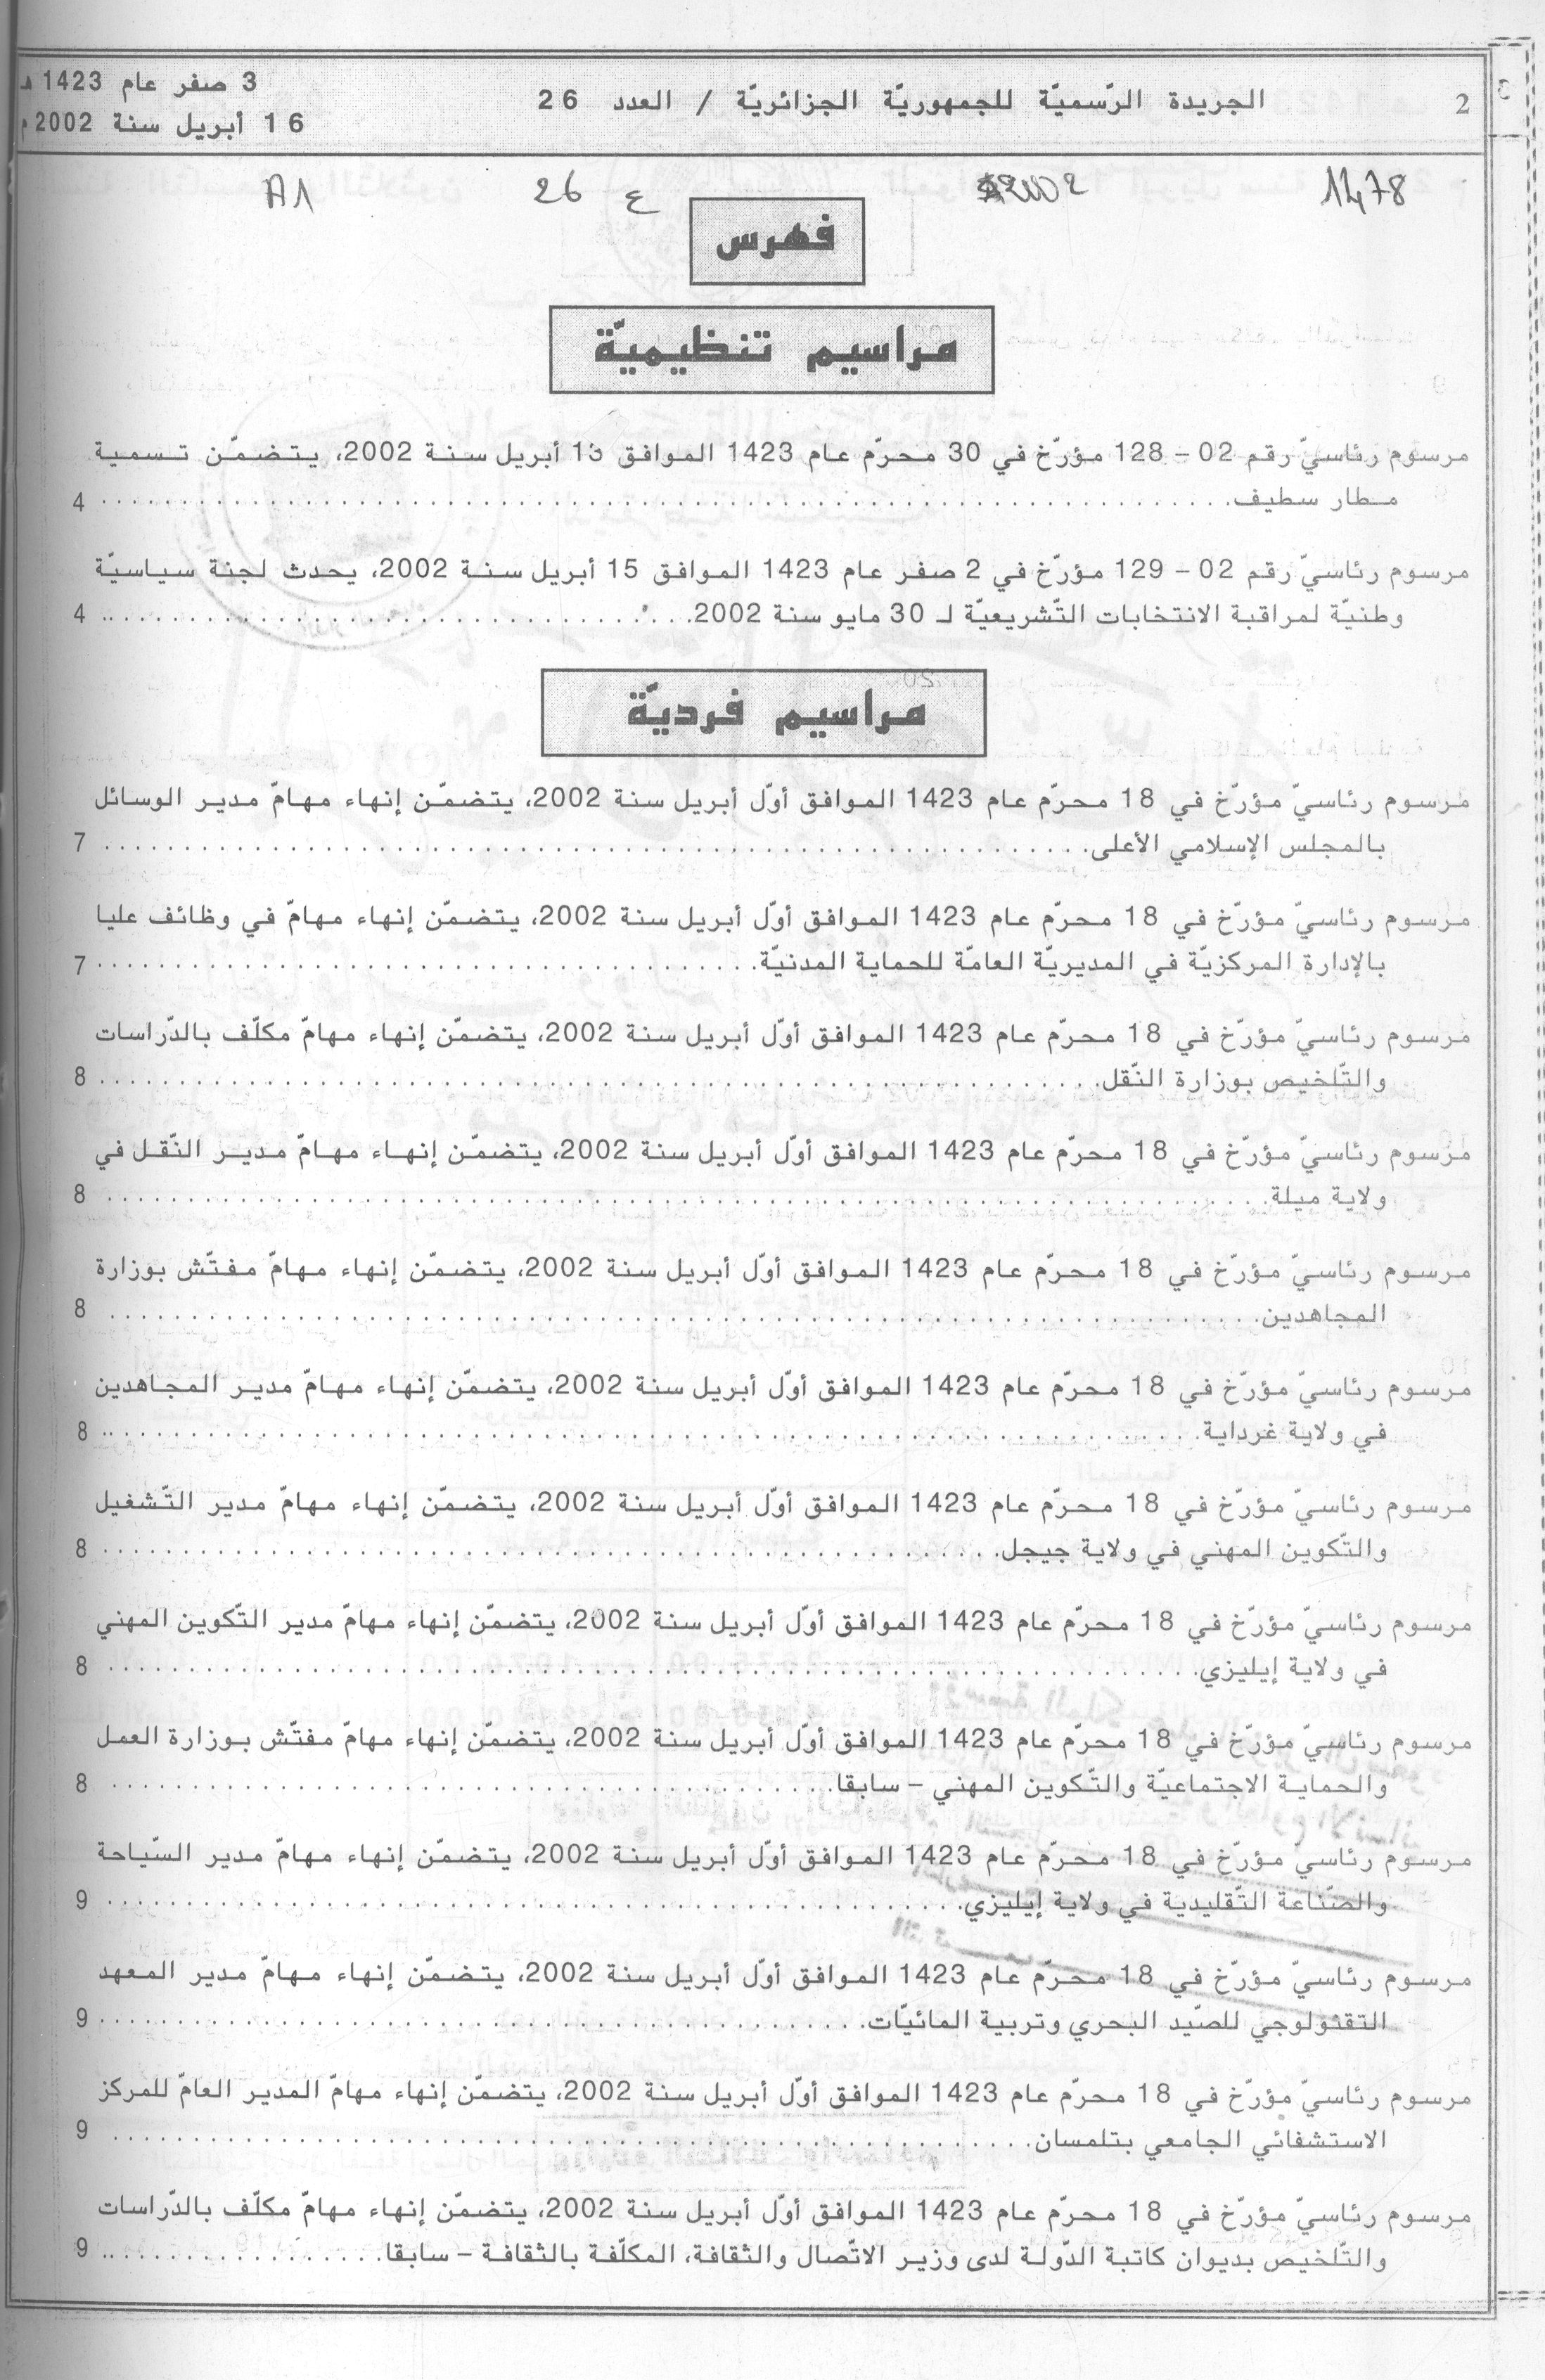 2
الجريدة الرّسميّة للجمهوريّة الجزائريّة / العدد 26
3 صفر عام 1423 هـ
16 أبريل سنة 2002 م
1478 2002 ع 26 A1
فهرس
مراسيم تنظيميّة
مرسوم رئاسيّ رقم 02 – 128 مؤرّخ في 30 محرّم عام 1423 الموافق 13 أبريل سنة 2002، يتضمّن تسمية
مطار سطيف. . . . . . . . . . 4
مرسوم رئاسيّ رقم 02 – 129 مؤرّخ في 2 صفر عام 1423 الموافق 15 أبريل سنة 2002، يحدث لجنة سياسيّة
وطنيّة لمراقبة الانتخابات التّشريعيّة لـ 30 مايو سنة 2002. . . . . . . . . . 4
مراسيم فرديّة
مرسوم رئاسيّ مؤرّخ في 18 محرّم عام 1423 الموافق أوّل أبريل سنة 2002، يتضمّن إنهاء مهامّ مدير الوسائل
بالمجلس الإسلامي الأعلى. . . . . . . . . . 7
مرسوم رئاسيّ مؤرّخ في 18 محرّم عام 1423 الموافق أوّل أبريل سنة 2002، يتضمّن إنهاء مهامّ في وظائف عليا
بالإدارة المركزيّة في المديريّة العامّة للحماية المدنيّة. . . . . . . . . . 7
مرسوم رئاسيّ مؤرّخ في 18 محرّم عام 1423 الموافق أوّل أبريل سنة 2002، يتضمّن إنهاء مهامّ مكلّف بالدّراسات
والتّلخيص بوزارة النّقل. . . . . . . . . . 8
مرسوم رئاسيّ مؤرّخ في 18 محرّم عام 1423 الموافق أوّل أبريل سنة 2002، يتضمّن إنهاء مهامّ مدير النّقل في
ولاية ميلة. . . . . . . . . . 8
مرسوم رئاسيّ مؤرّخ في 18 محرّم عام 1423 الموافق أوّل أبريل سنة 2002، يتضمّن إنهاء مهامّ مفتّش بوزارة
المجاهدين. . . . . . . . . . 8
مرسوم رئاسيّ مؤرّخ في 18 محرّم عام 1423 الموافق أوّل أبريل سنة 2002، يتضمّن إنهاء مهامّ مدير المجاهدين
في ولاية غرداية. . . . . . . . . . 8
مرسوم رئاسيّ مؤرّخ في 18 محرّم عام 1423 الموافق أوّل أبريل سنة 2002، يتضمّن إنهاء مهامّ مدير التّشغيل
والتّكوين المهني في ولاية جيجل. . . . . . . . . . 8
مرسوم رئاسيّ مؤرّخ في 18 محرّم عام 1423 الموافق أوّل أبريل سنة 2002، يتضمّن إنهاء مهامّ مدير التّكوين المهني
في ولاية إيليزي. . . . . . . . . . 8
مرسوم رئاسيّ مؤرّخ في 18 محرّم عام 1423 الموافق أوّل أبريل سنة 2002، يتضمّن إنهاء مهامّ مفتّش بوزارة العمل
والحماية الاجتماعيّة والتّكوين المهني – سابقا. . . . . . . . . . 8
مرسوم رئاسيّ مؤرّخ في 18 محرّم عام 1423 الموافق أوّل أبريل سنة 2002، يتضمّن إنهاء مهامّ مدير السّياحة
والصّناعة التّقليدية في ولاية إيليزي. . . . . . . . . . 9
مرسوم رئاسيّ مؤرّخ في 18 محرّم عام 1423 الموافق أوّل أبريل سنة 2002، يتضمّن إنهاء مهامّ مدير المعهد
التقنولوجي للصّيد البحري وتربية المائيّات. . . . . . . . . . 9
مرسوم رئاسيّ مؤرّخ في 18 محرّم عام 1423 الموافق أوّل أبريل سنة 2002، يتضمّن إنهاء مهامّ المدير العامّ للمركز
الاستشفائي الجامعي بتلمسان. . . . . . . . . . 9
مرسوم رئاسيّ مؤرّخ في 18 محرّم عام 1423 الموافق أوّل أبريل سنة 2002، يتضمّن إنهاء مهامّ مكلّف بالدّراسات
والتّلخيص بديوان كاتبة الدّولة لدى وزير الاتّصال والثقافة، المكلّفة بالثقافة – سابقا. . . . . . . . . . 9